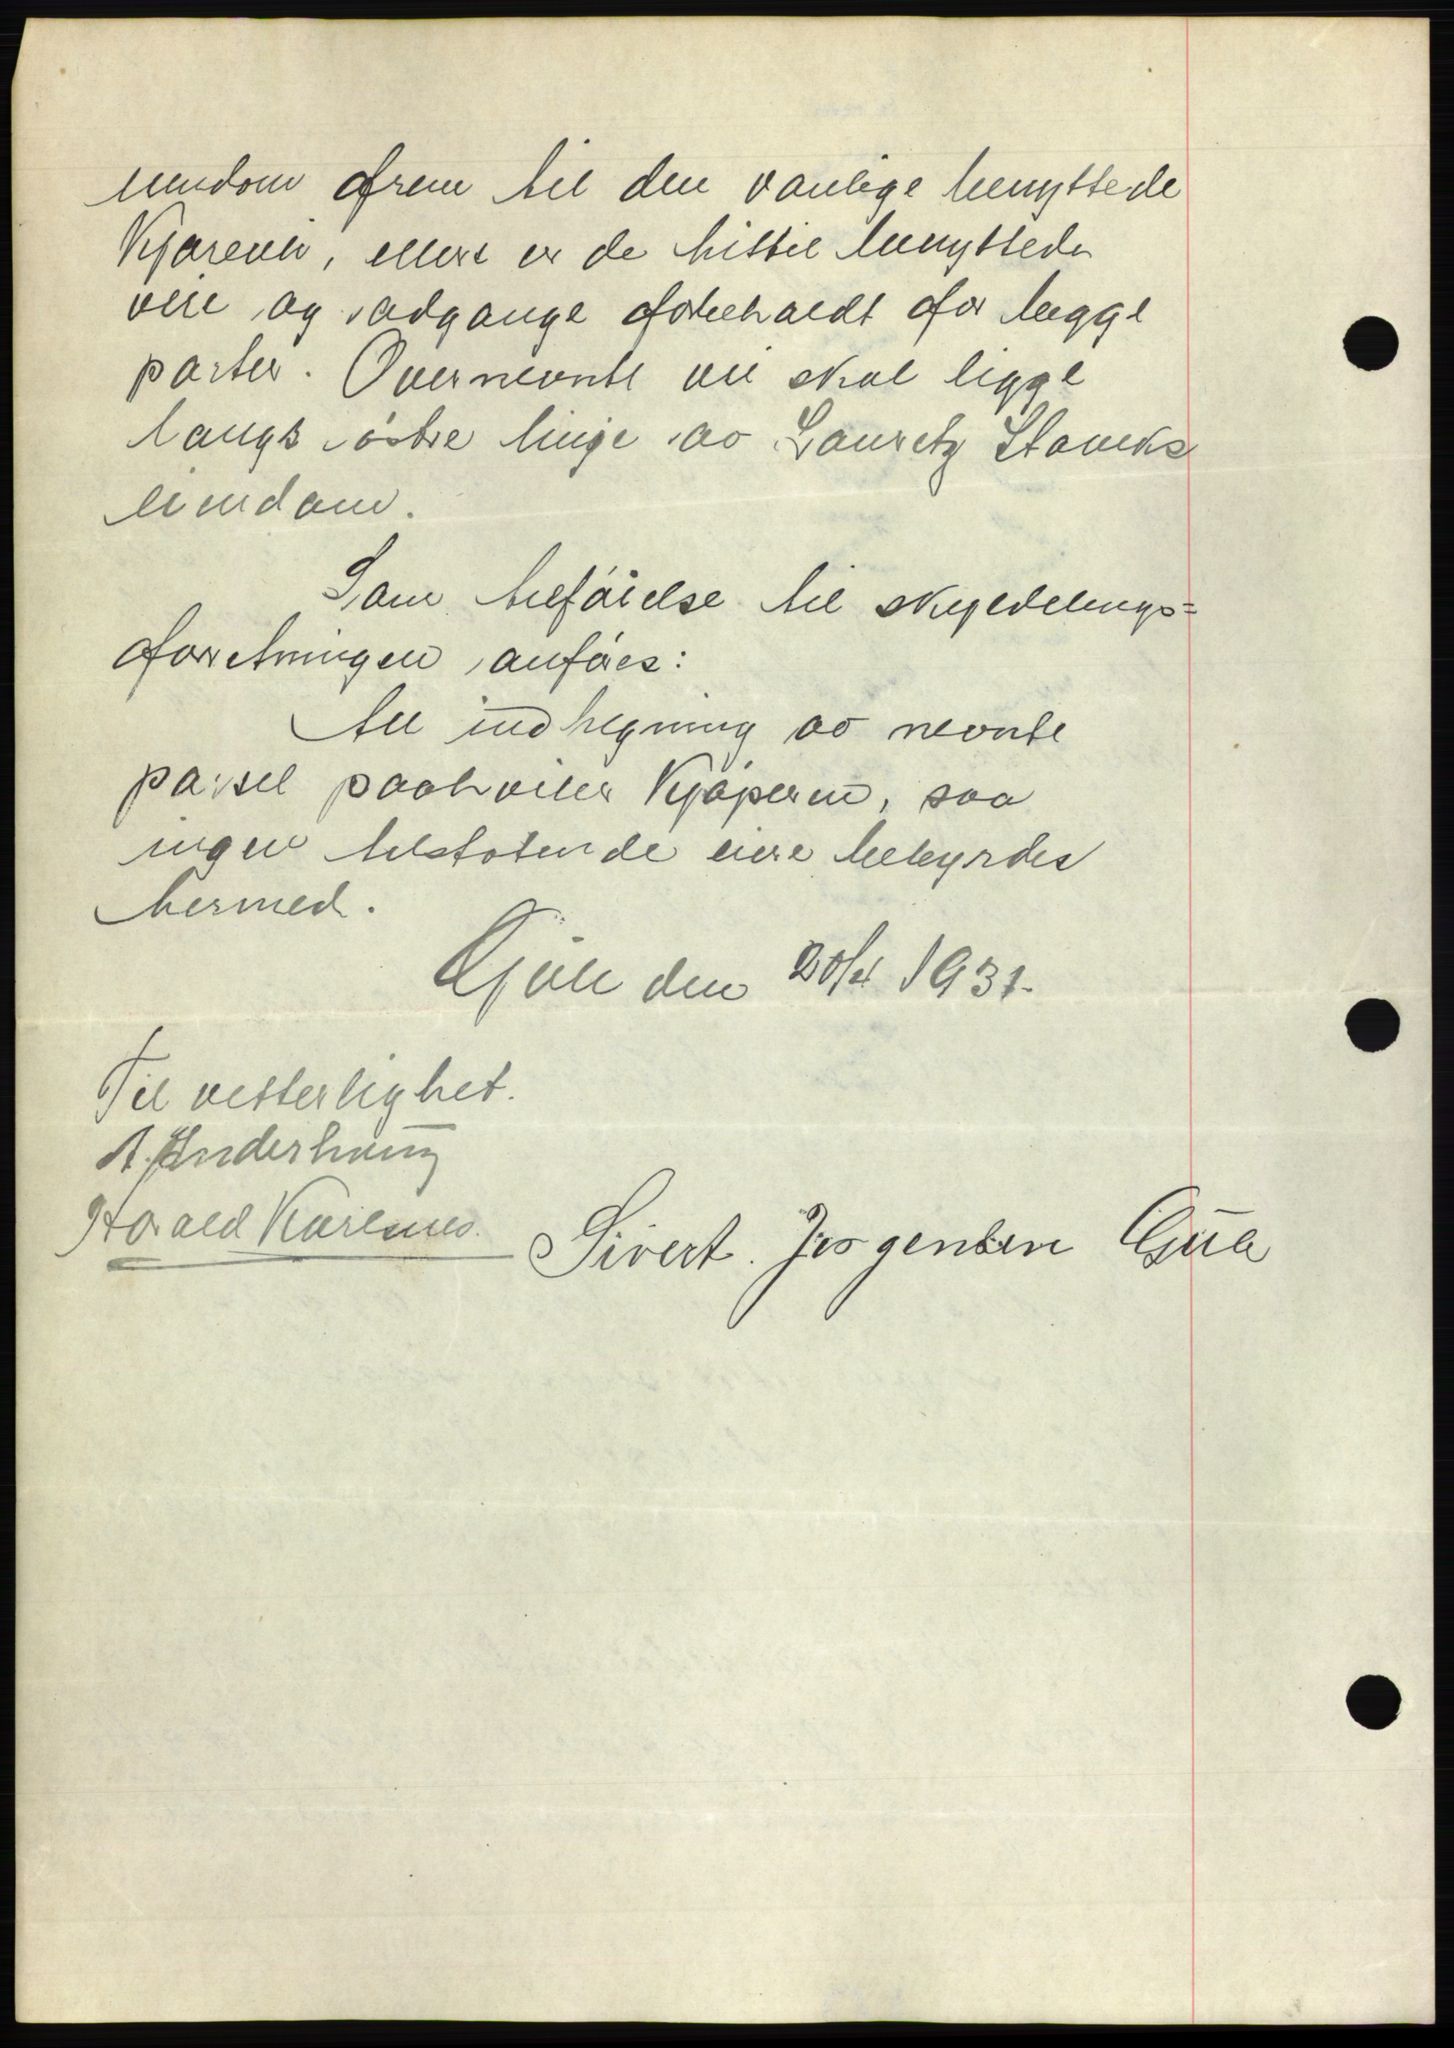 eiendom frem til den vanlige benyttede
Kjørevei, ellers er de hittil benyttede
veie og adgange forbeholdt for begge
parter. Overnevnte vei skal ligge
langs østre linje av Lauretz Staveks
eiendom.
Som tilføielse til skyldelings=
forretningen anføres:
All indhegning av nevnte
parsel paahviler Kjøperen, saa
ingen tilstøtende eiere bebyrdes
hermed.
Gjüle den 20/4 1931.
Til vitterlighet.
A. Enderhaug
Harald Karlsnes.
Sivert. Jørgensen Güle